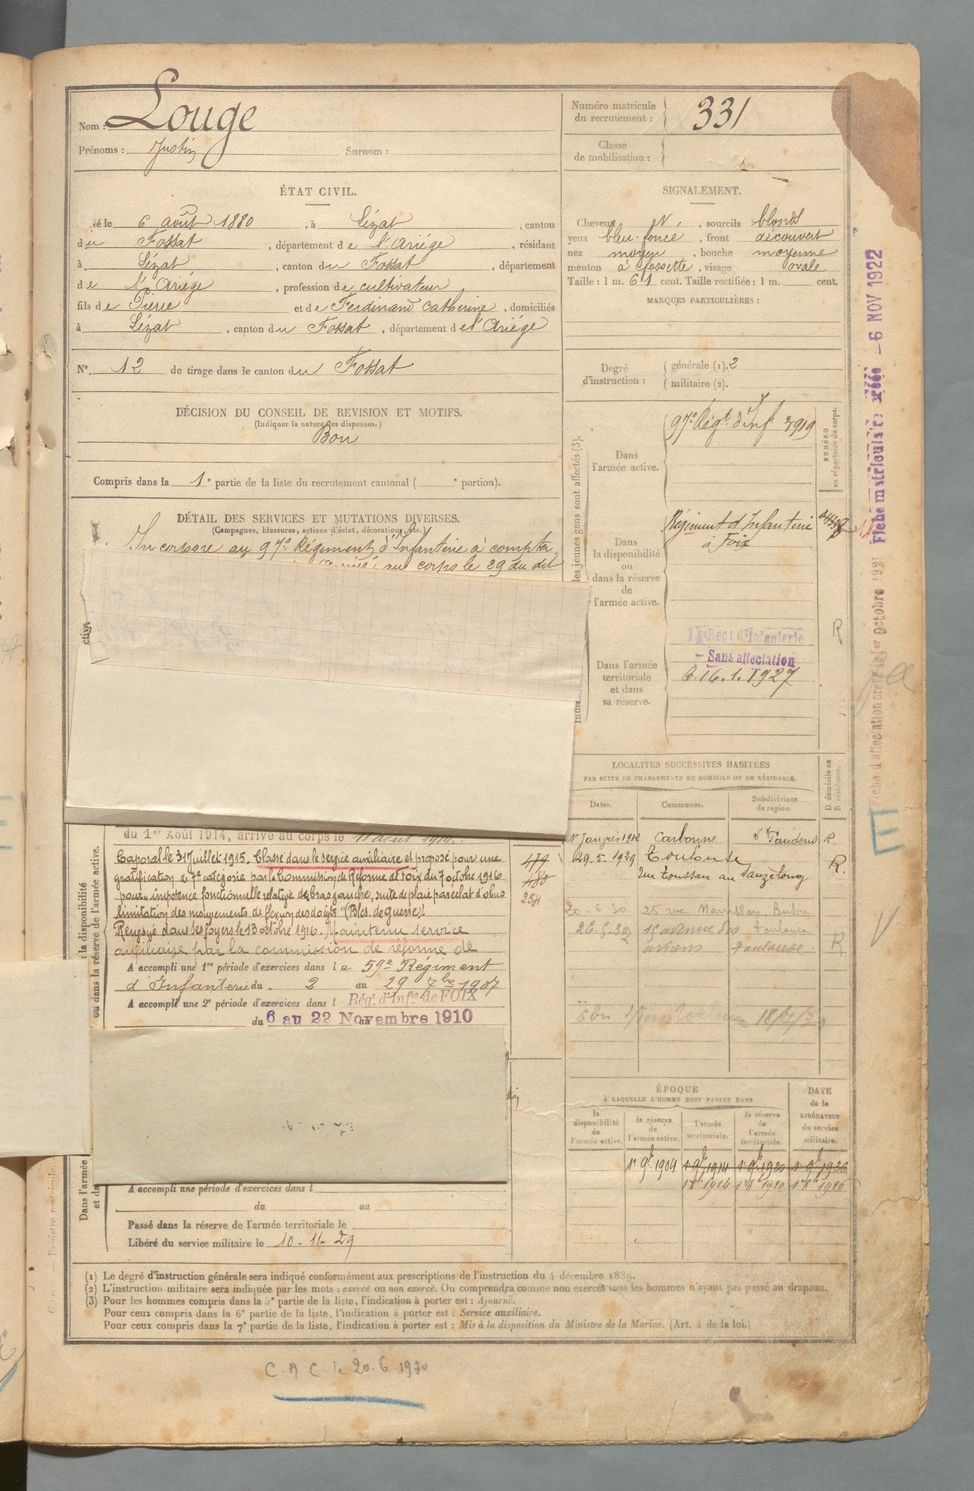 Nom : Louge
Prénoms : Justin Surnom :
Numéro matricule
du recrutement : 331
Classe
de mobilisation :
ÉTAT CIVIL.
Né le 6 août 1880, à Lézat, canton
du Fossat, département de l'Ariège, résidant
à Lézat, canton du Fossat, département
de l'Ariège, profession de cultivateur,
fils de Pierre et de Ferdinand Catherine, domiciliés
à Lézat, canton du Fossat, département de l'Ariège
N° 12 de tirage dans le canton du Fossat
SIGNALEMENT.
Cheveux , sourcils blonds
yeux bleu foncé, front découvert
nez moyen, bouche moyenne
menton à fossette, visage ovale
Taille : 1 m. 61 cent. Taille rectifiée : 1 m. cent.
MARQUES PARTICULIÈRES :
Degré
d'instruction :
générale (1). 2
militaire (2).
DÉCISION DU CONSEIL DE REVISION ET MOTIFS.
(Indiquer la nature des dispenses.)
Bon
Compris dans la 1e partie de la liste du recrutement cantonal ( e portion).
DÉTAIL DES SERVICES ET MUTATIONS DIVERSES.
(Campagnes, blessures, actions d'éclat, décorations, etc.)
Incorporé au 97e Régiment d'Infanterie à compter
au corps le 29 du dit
les jeunes gens sont affectés (3).
NUMÉRO
au répertoire du corps.
Dans
l'armée active.
97e Régt d'inf 7919
Dans
la disponibilité
ou
dans la réserve
de
l'armée active.
Régiment d'Infanterie
à Foix
Dans l'armée
territoriale
et dans
sa réserve.
Regt d'Infanterie
- Sans affectation
le 16.1.1927
R
Fiche matriculaire créée - 6 NOV 1922
Fiche d'affectation créée le 1er Octobre 1921
LOCALITÉS SUCCESSIVES HABITÉES
PAR SUITE DE CHANGEMENTS DE DOMICILE OU DE RÉSIDENCE.
Dates.
Communes.
Subdivisions
de région.
D domicile ou
R résidence.
1er Janvier 1912 Carbonne St Gaudens R
29.5.1929 Toulouse R.
20-6-30 25 rue
26.5.32 avenue des Toulouse
Toulouse R
du 1er Août 1914, arrivé au corps le
Caporal le 31 Juillet 1915. Classé dans le service auxiliaire et proposé pour une
gratification de 7e catégorie par la Commission de Réforme de Foix du 7 octobre 1916
pour impotence fonctionnelle relative de bras gauche, suite de plaie par éclat d'obus
limitation des mouvements de flexion des doigts. (Bles. de guerre)
Renvoyé dans ses foyers le 13 octobre 1916. Maintenu service
auxiliaire par la commission de réforme de
A accompli une 1re période d'exercices dans le 59e Régiment
d'Infanterie du 2 au 29 7bre 1907
A accompli une 2e période d'exercices dans l Rég. d'Infie de FOIX
du 6 au 22 Novembre 1910
la disponibilité
ou dans la réserve de l'armée active.
ÉPOQUE
À LAQUELLE L'HOMME DOIT PASSER DANS
DATE
de la
LIBÉRATION
du service
militaire.
la
disponibilité
de
l'armée active.
la réserve
de
l'armée active.
l'armée
territoriale.
la réserve
de
l'armée
territoriale.
1er 9bre 1904 1er 9bre 1914 1er 9bre 1920 1er 9bre 1926
A accompli une période d'exercices dans l
du au
Passé dans la réserve de l'armée territoriale le
Libéré du service militaire le 10-11-29
(1) Le degré d'instruction générale sera indiqué conformément aux prescriptions de l'instruction du 4 décembre 1889.
(2) L'instruction militaire sera indiquée par les mots : exercé ou non exercé. On comprendra comme non exercés tous les hommes n'ayant pas passé au drapeau.
(3) Pour les hommes compris dans la 5e partie de la liste, l'indication à porter est : Ajourné.
Pour ceux compris dans la 6e partie de la liste, l'indication à porter est : Service auxiliaire.
Pour ceux compris dans la 7e partie de la liste, l'indication à porter est : Mis à la disposition du Ministre de la Marine. (Art. 4 de la loi.)
C.A.C. le 20.6.1930